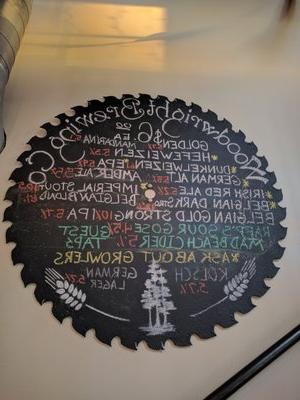 Woodwright Brewing Co.
$6.00 EA
GOLDEN MANDARINA 5.5%
*HEFEWEIZEN
*DUNKELWEIZEN EPA
GERMAN ALT AMBER ALE 5.5%
*IRISH RED ALE IMPERIAL STOUT
*BELGIAN DARK STRONG BELGIAN BLOND
BELGIAN GOLD STRONG 10% IPA 5.7%
SOUR GOSE 4.5% GUEST
MAD BEACH CIDER 5% TAPS
*ASK ABOUT GROWLERS
KOLSCH GERMAN
5.7% LAGER